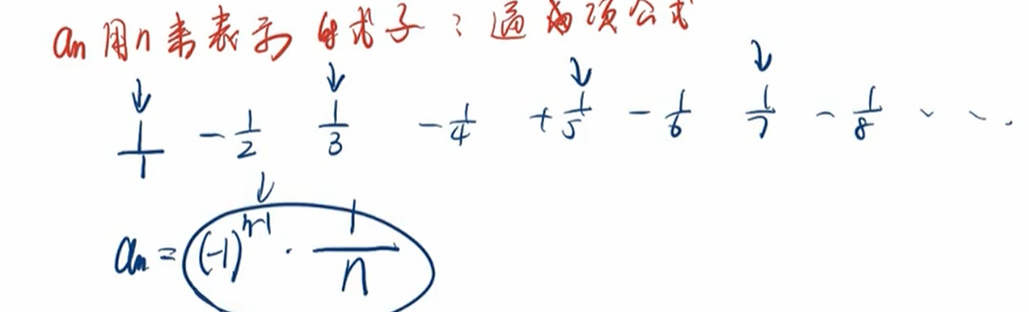 an用n来表示的式子：通项公式
1/1 -1/2 1/3 -1/4 +1/5 -1/6 1/7 -1/8 ...
an=(-1)^(n-1)·1/n